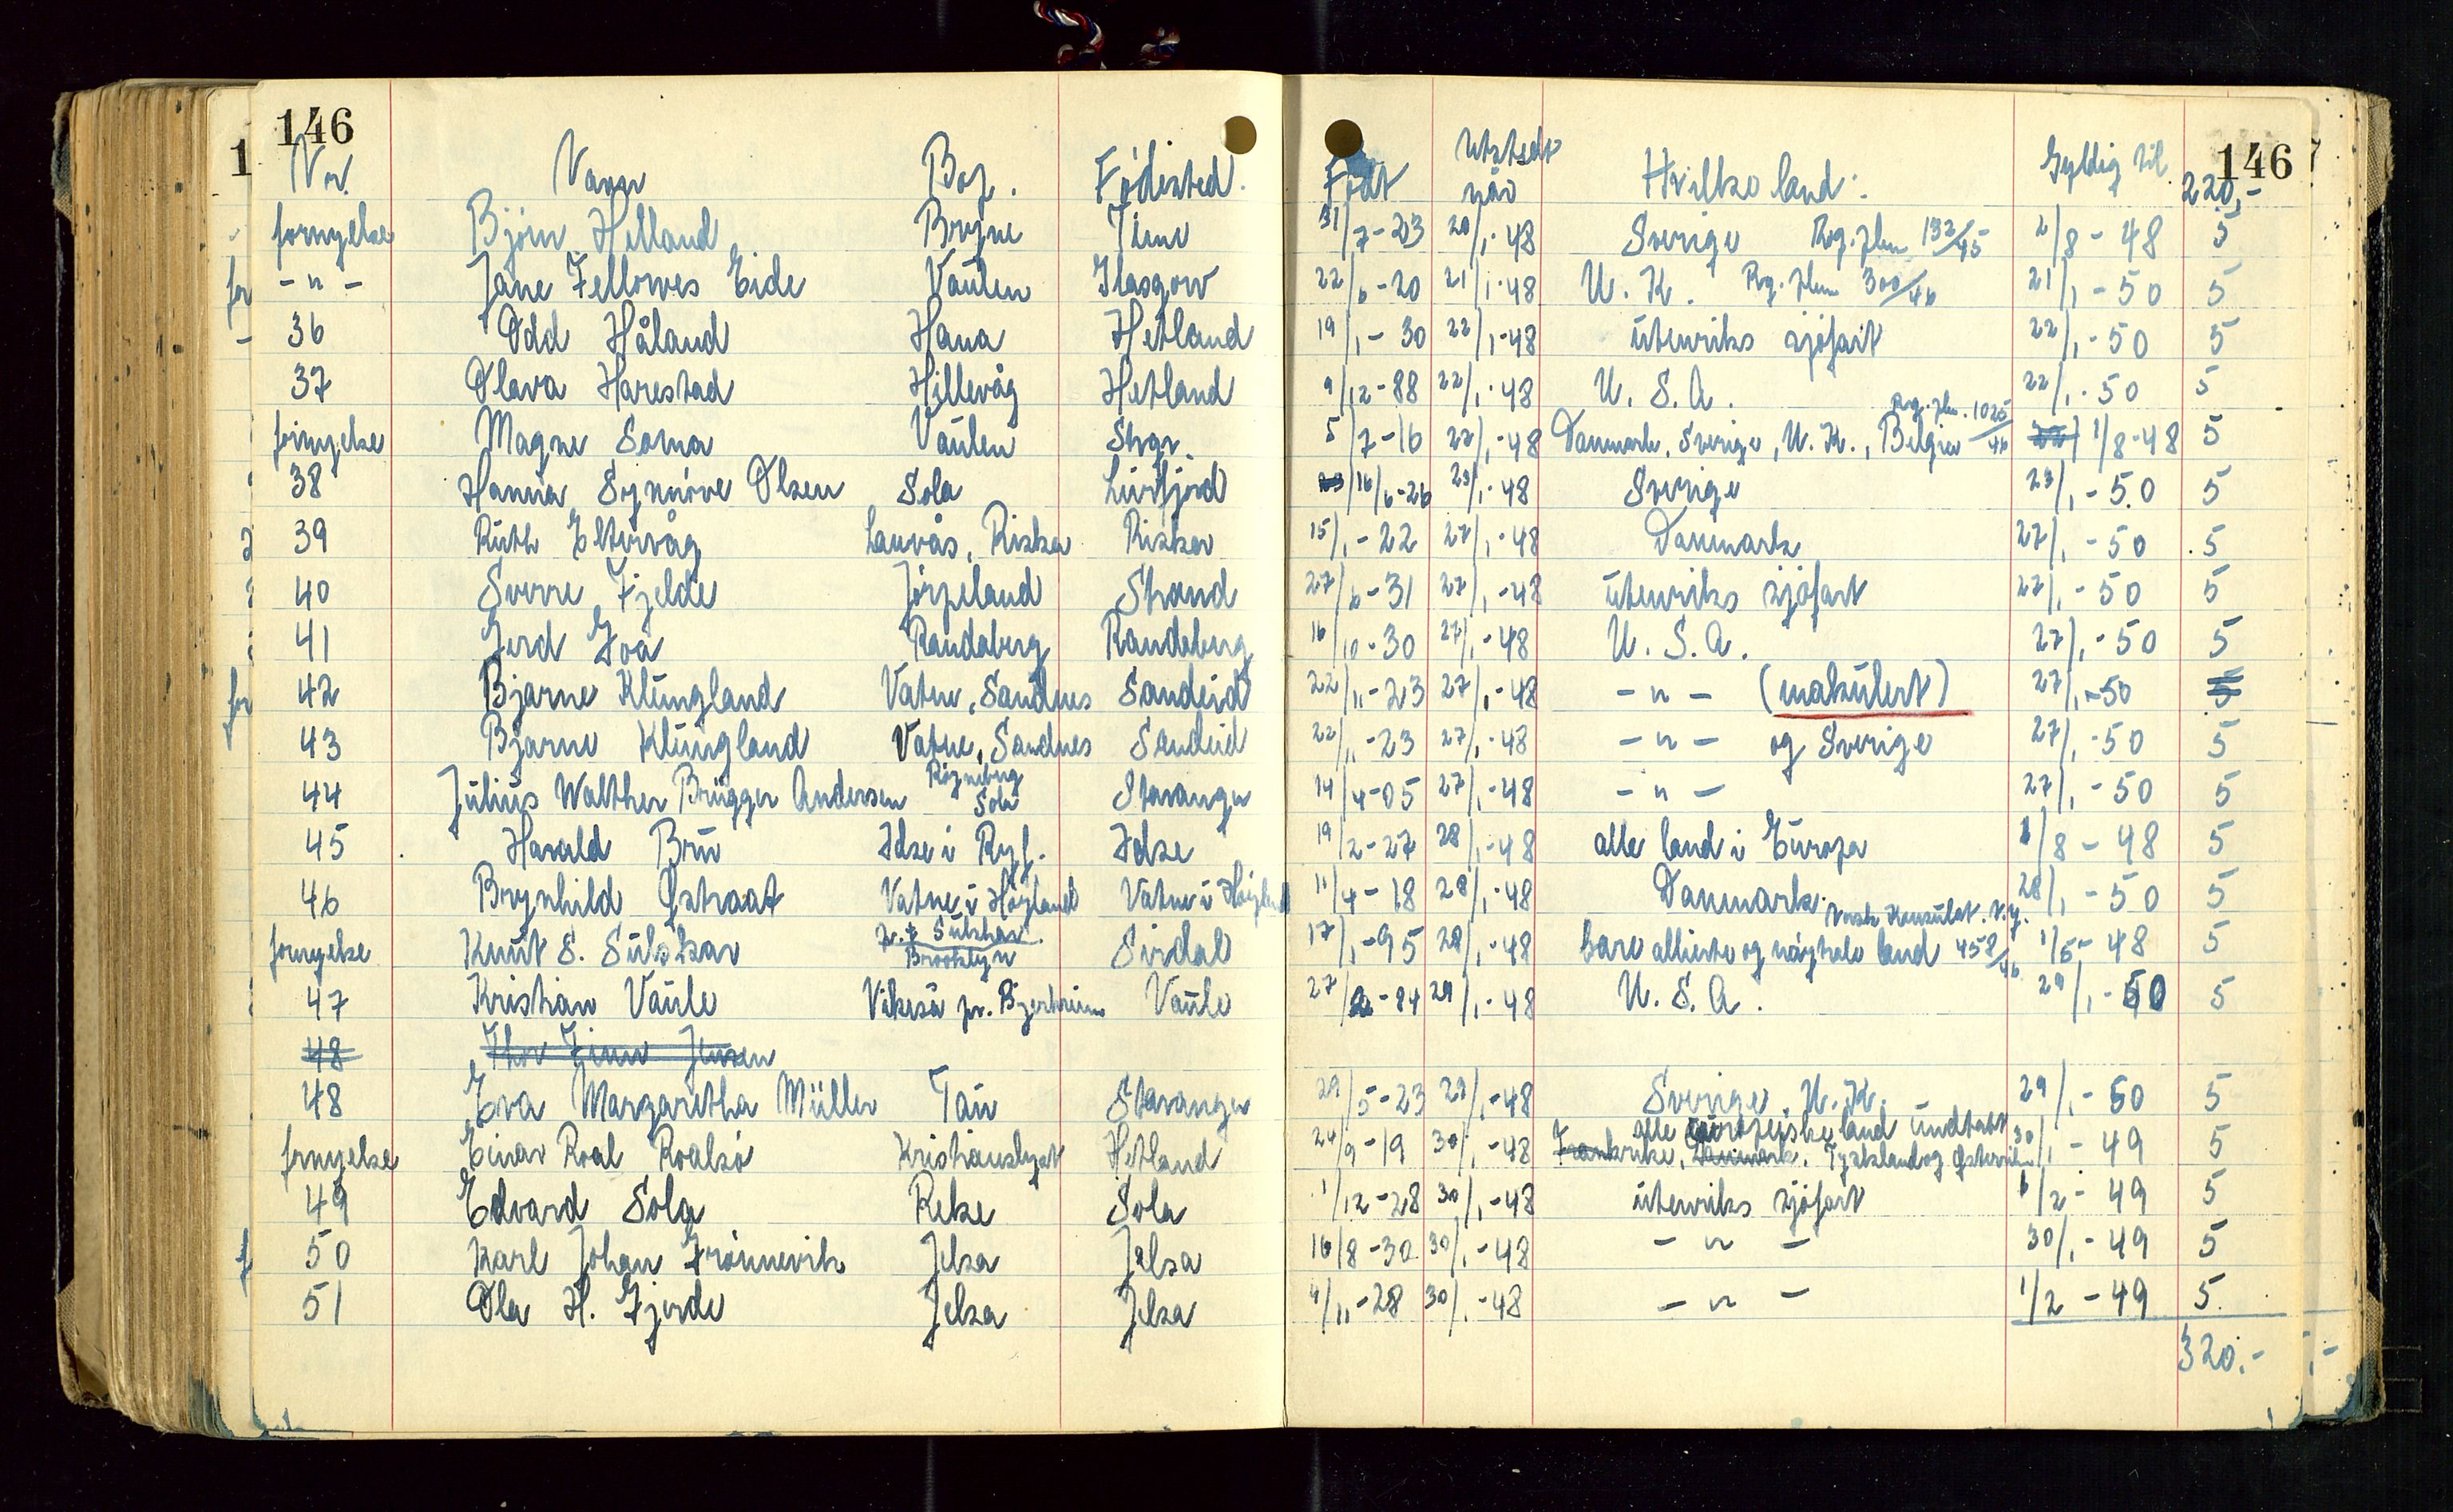 146 146
Nr. Navn Bop. Fødested. Født utstedt når Hvilke land: Gyldig til 220,-
fornyelse Bjørn Helland Bryne Time 31/7-23 20/1-48 Sverige Rog. plm 132/45 2/8-48 5
-"- Jane Fellowes Eide Vaulen Glasgow 22/6-20 21/1-48 U.K. Rg. plm 300/46 21/1-50 5
36 Odd Håland Hana Hetland 19/1-30 22/1-48 utenriks sjøfart 22/1-50 5
37 Olava Harestad Hillevåg Hetland 9/12-88 22/1-48 U.S.A. 22/1-50 5
fornyelse Magne Soma Vaulen Stvgr. 5/7-16 22/1-48 Danmark, Sverige, U.K., Belgien Rog. plm. 1025/46 1/8-48 5
38 Hanna Synnøve Olsen Sola Lurfjord 16/6-26 23/1-48 Sverige 23/1-50 5
39 Ruth Eltervåg Lauvås, Riska Riska 15/1-22 27/1-48 Danmark 27/1-50 5
40 Sverre Fjelde Jørpeland Strand 27/6-31 27/1-48 utenriks sjøfart 27/1-50 5
41 Gerd Goa Randaberg Randaberg 16/10-30 27/1-48 U.S.A. 27/1-50 5
42 Bjarne Klungland Vatne, Sandnes Sandeid 22/11-23 27/1-48 -"- (makulert) 27/1-50 5
43 Bjarne Klungland Vatne, Sandnes Sandeid 22/11-23 27/1-48 -"- og Sverige 27/1-50 5
44 Julius Walther Brügger Andersen Røyneberg Sola Stavanger 14/4-05 27/1-48 -"- 27/1-50 5
45 Harald Bru Idse i Ryf. Idse 19/2-27 28/1-48 alle land i Europa 1/8-48 5
46 Brynhild Østraat Vatne i Høyland Vatne i Høyland 11/4-18 28/1-48 Danmark. 28/1-50 5
fornyelse Knut S. Sulskar Brooklyn Sirdal 17/1-95 28/1-48 bare allierte og nøytrale land Norsk Konsulat. N.Y. 458/46 1/5-48 5
47 Kristian Vaule Vikeså pr. Bjerkreim Vaule 27/2-84 29/1-48 U.S.A. 29/1-50 5
48 Thor Finn Jensen
48 Eva Margaretha Müller Tau Stavanger 29/5-23 29/1-48 Sverige, U.K. 29/1-50 5
fornyelse Einar Roal Roalsø Kristianslyst Hetland 24/9-19 30/1-48 alle europeiske land undtatt Frankrike, Danmark, Tyskland og Østerrike 30/1-49 5
49 Edvard Sola Reke Sola 1/12-28 30/1-48 utenriks sjøfart 1/2-49 5
50 Karl Johan Frønnevik Jelsa Jelsa 16/8-30 30/1-48 -"- 30/1-49 5
51 Ola H. Gjerde Jelsa Jelsa 4/11-28 30/1-48 -"- 1/2-49 5
320,-